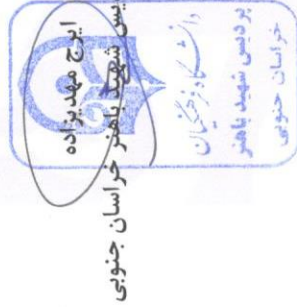 ایرج مهدیزاده
یس شهید باهنر خراسان جنوبی
دانشگاه فرهنگیان
پردیس شهید باهنر
خراسان جنوبی